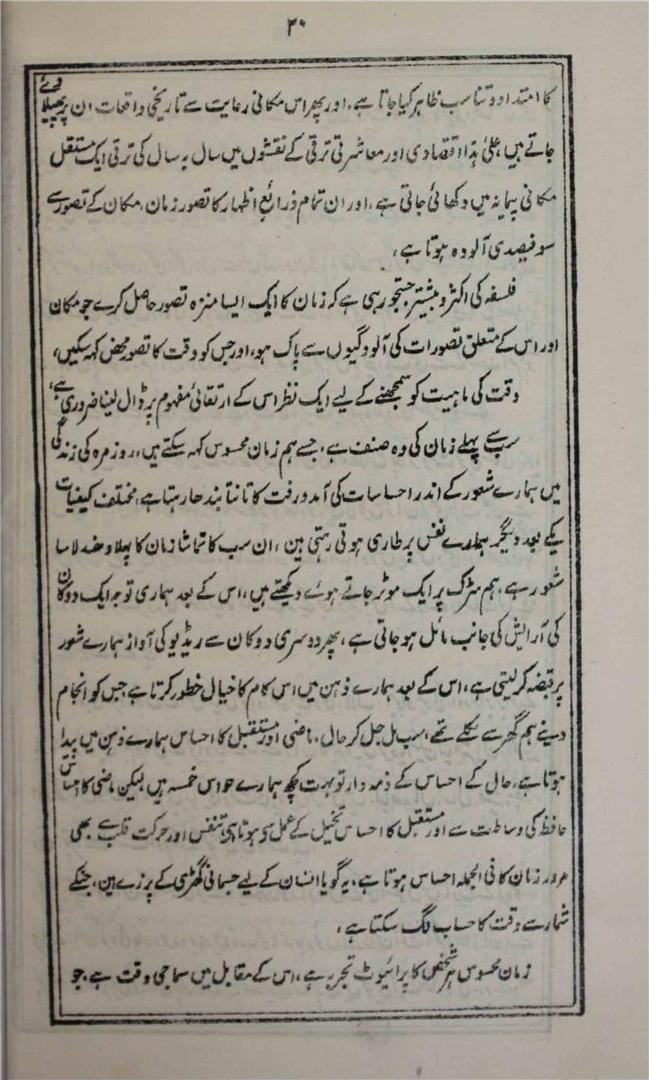 ۳۰
کا امتداد و تناسب ظاہر کیا جاتا ہے، اور پھر اس مکانی رعایت سے تاریخی واقعات ان پر پھیلا دیے
جاتے ہیں، علیٰ ہذا اقتصادی اور معاشرتی ترقی کے نقشوں میں سال بہ سال کی ترقی ایک مستقل
مکانی پیمانہ میں دکھائی جاتی ہے، اور ان تمام ذرائع اظہار کا تصور زمان، مکان کے تصور سے
سو فیصدی آلودہ ہوتا ہے،
فلسفہ کی اکثر و بیشتر جستجو رہی ہے کہ زمان کا ایک ایسا منزہ تصور حاصل کرے جو مکان
اور اس کے متعلق تصورات کی آلودگیوں سے پاک ہو، اور جس کو وقت کا تصور محض کہہ سکیں،
وقت کی ماہیت کو سمجھنے کے لیے ایک نظر اس کے ارتقائی مفہوم پر ڈال لینا ضروری ہے،
سب سے پہلے زمان کی وہ صنف ہے، جسے ہم زمان محسوس کہہ سکتے ہیں، روزمرہ کی زندگی
میں ہمارے شعور کے اندر احساسات کی آمد و رفت کا تانتا بندھا رہتا ہے، مختلف کیفیات
یکے بعد دیگر ہمارے نفس پر طاری ہوتی رہتی ہین، ان سب کا تماشا زمان کا پہلا دھندلا سا
شعور ہے، ہم سڑک پر ایک موٹر جاتے ہوئے دیکھتے ہیں، اس کے بعد ہماری توجہ ایک دوکان
کی آرایش کی جانب مائل ہو جاتی ہے، پھر دوسری دوکان سے ریڈیو کی آواز ہمارے شعور
پر قبضہ کر لیتی ہے، اس کے بعد ہمارے ذہن میں اس کام کا خیال خطور کرتا ہے جس کو انجام
دینے ہم گھر سے نکلے تھے، سب مل جل کر حال، ماضی اور مستقبل کا احساس ہمارے ذہن میں پیدا
ہوتا ہے، حال کے احساس کے ذمہ دار تو بہت کچھ ہمارے حواس خمسہ ہیں لیکن ماضی کا احساس
حافظ کی وساطت سے اور مستقبل کا احساس تخیل کے عمل سے ہوتا ہی تنفس اور حرکت قلب سے بھی
مرور زمان کا فی الجملہ احساس ہوتا ہے، یہ گویا انسان کے لیے جسمانی گھڑی کے پرزے ہین، جنکے
شمار سے وقت کا حساب لگ سکتا ہے،
زمان محسوس ہر شخص کا پرائیوٹ تجربہ ہے، اس کے مقابل میں سماجی وقت ہے، جو